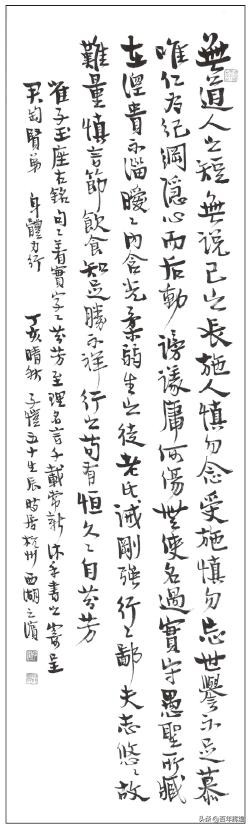 無道人之短無説己之長施人慎勿念受施慎勿忘世譽不足慕
唯仁为紀綱隱心而后動謗議庸何傷無使名過實守愚聖所臧
在涅貴不淄曖〻內含光柔弱生之徒老氏誡剛強行〻鄙夫志悠〻故
難量慎言節飲食知足勝不祥行之苟有恒久〻自芬芳
崔子玉座右銘句〻着實字〻芬芳至理名言千載常新沐手書之寄呈
君匋賢弟 身體力行 丁亥晴秋 子愷五十生辰時居杭州西湖之濱